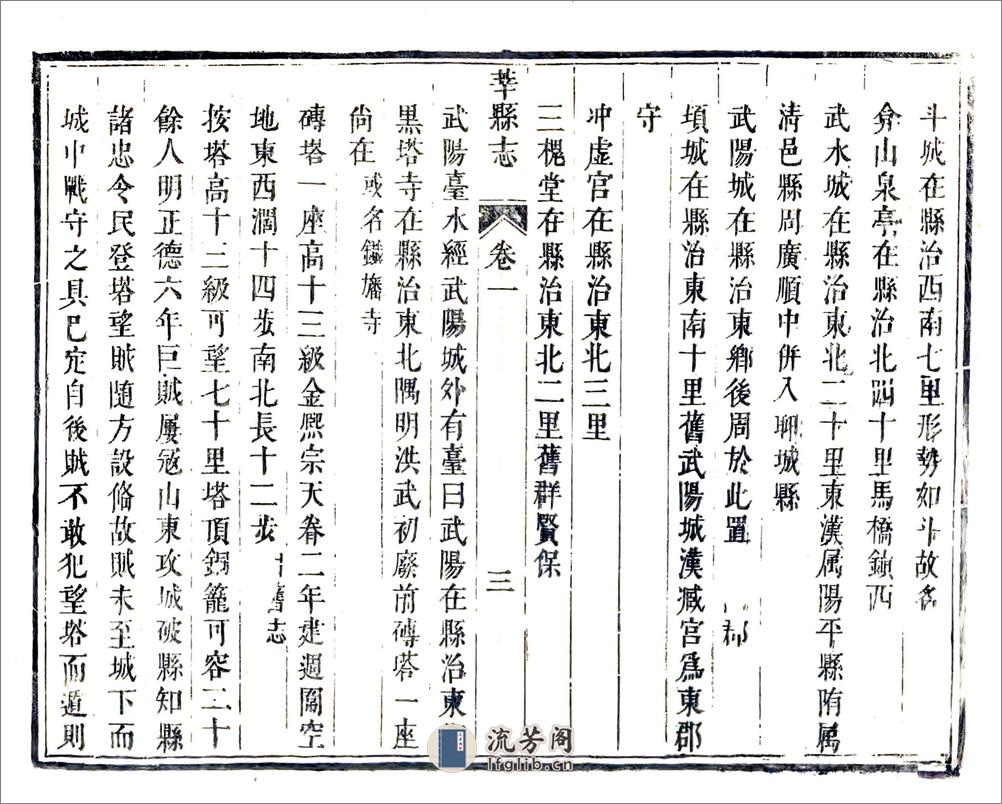 斗城在縣治西南七里形勢如斗故名
弇山泉亭在縣治北四十里馬橋鎮西
武水城在縣治東北二十里東漢属陽平縣隋属
清邑縣周廣順中併入聊城縣
武陽城在縣治東鄉後周於此置 郡
頃城在縣治東南十里舊武陽城漢臧宫爲東郡
守
冲虚宫在縣治東北三里
三槐堂在縣治東北二里舊群賢保
莘縣志 卷一 三
武陽臺水經武陽城外有臺曰武陽在縣治東
黒塔寺在縣治東北隅明洪武初廢前磚塔一座
尙在 或名鐵旛寺
磚塔一座高十三級金熈宗天眷二年建週圍空
地東西濶十四步南北長十二步 舊志
按塔高十三級可望七十里塔頂銅籠可容二十
餘人明正德六年巨賊屢寇山東攻城破縣知縣
諸忠令民登塔望賊随方設俻故賊未至城下而
城中戰守之具已定自後賊不敢犯望塔而遁則
流芳阁
lfglib.cn